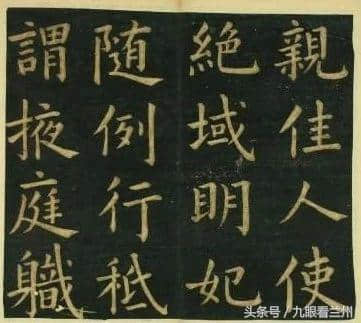 親佳人使
絶域明妃
隨例行秪
謂掖庭職
头条号／九眼看兰州